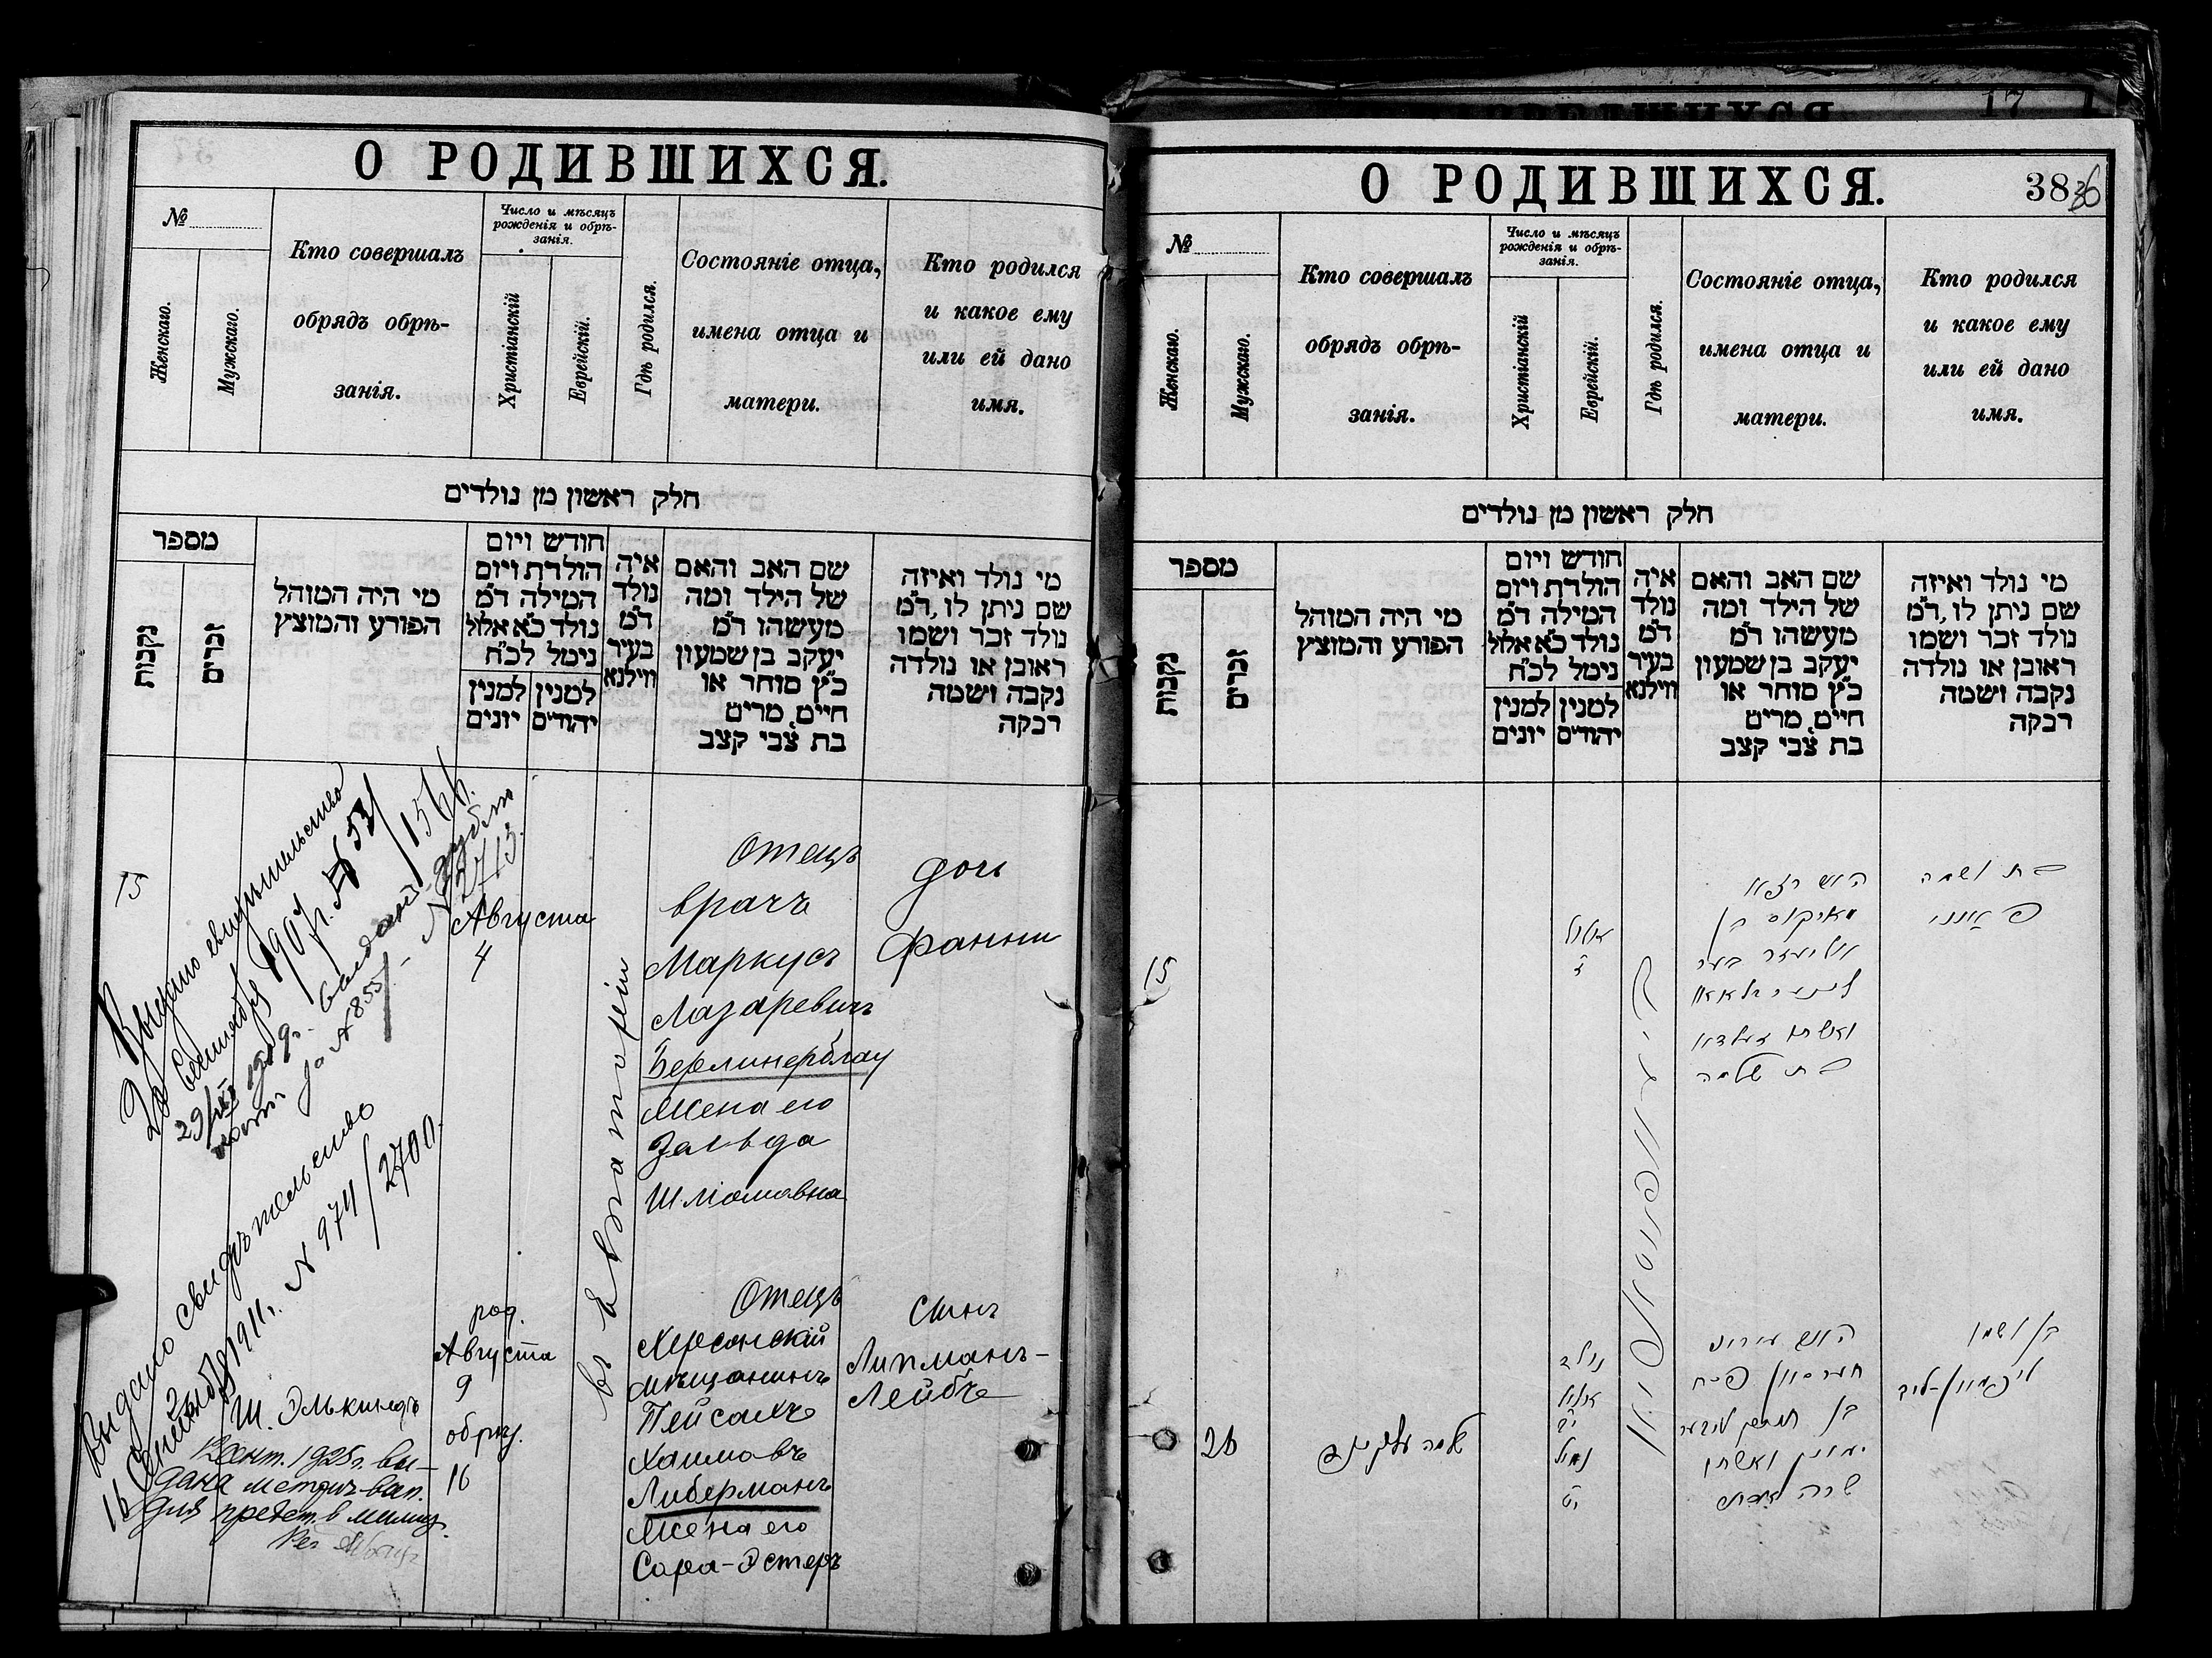 О РОДИВШИХСЯ.
№
Женскаго.
Мужскаго.
Кто совершалъ
обрядъ обрѣ-
занія.
Число и мѣсяцъ
рожденія и обрѣ-
занія.
Христіанскій
Еврейскій.
Гдѣ родился.
Состояніе отца,
имена отца и
матери.
Кто родился
и какое ему
или ей дано
имя.
חלק ראשון מן נולדים
מספר
נקבות
זכרים
מי היה המוהל
הפורע והמוצץ
חודש ויום
הולדת ויום
המילה ד״מ
נולד כ״א אלול
נימל לכ״ח
למנין יהודים
למנין יונים
איה
נולד
ד״מ
בעיר
ווילנא
שם האב והאם
של הילד ומה
מעשהו ד״מ
יעקב בן שמעון
כ״ץ סוחר או
חייט, מרים
בת צבי קצב
מי נולד ואיזה
שם ניתן לו, ד״מ
נולד זכר ושמו
ראובן או נולדה
נקבה ושמה
רבקה
15
Выдано свидѣтельство
1907 г. № 53/1566.
№ 855/ - № 2713.
Августа
4
въ Евпаторіи
Отецъ
врачъ
Маркусъ
Лазаревичъ
Берлинерблау
Жена его
Зельда
Шліомовна
дочь
Фанни
Выдано свидѣтельство
16 1911 г. № 974/2700.
Ш. Элькиндъ
1925 г. вы-
дана метрич. вып.
для предст. в милиц.
род.
Августа
9
обрѣз.
16
Отецъ
Херсонскій
мѣщанинъ
Пейсахъ
Хаимовъ
Либерманъ
Жена его
Сара-Эстеръ
Сынъ
Липманъ-
Лейбъ
17
О РОДИВШИХСЯ.
38
36
№
Женскаго.
Мужскаго.
Кто совершалъ
обрядъ обрѣ-
занія.
Число и мѣсяцъ
рожденія и обрѣ-
занія.
Христіанскій
Еврейскій.
Гдѣ родился.
Состояніе отца,
имена отца и
матери.
Кто родился
и какое ему
или ей дано
имя.
חלק ראשון מן נולדים
מספר
נקבות
זכרים
מי היה המוהל
הפורע והמוצץ
חודש ויום
הולדת ויום
המילה ד״מ
נולד כ״א אלול
נימל לכ״ח
למנין יהודים
למנין יונים
איה
נולד
ד״מ
בעיר
ווילנא
שם האב והאם
של הילד ומה
מעשהו ד״מ
יעקב בן שמעון
כ״ץ סוחר או
חייט, מרים
בת צבי קצב
מי נולד ואיזה
שם ניתן לו, ד״מ
נולד זכר ושמו
ראובן או נולדה
נקבה ושמה
רבקה
15
אלול
מארקוס בן
ואשתו זעלדא
בת שלמה
בת ושמה
פאנני
26
שלמה עלקינד
נולד
אלול
נמול
חערסאן פסח
ואשתו
שרה אסתר
בן ושמו
ליפמאן-ליב